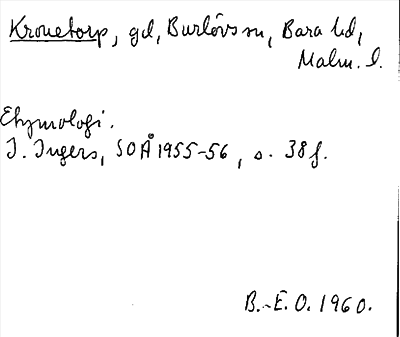 Kronetorp, gd, Burlövs sn, Bara hd,
Malm. l.
Etymologi.
I. Ingers, SOÅ 1955-56, s. 38 f.
B.-E. O. 1960.